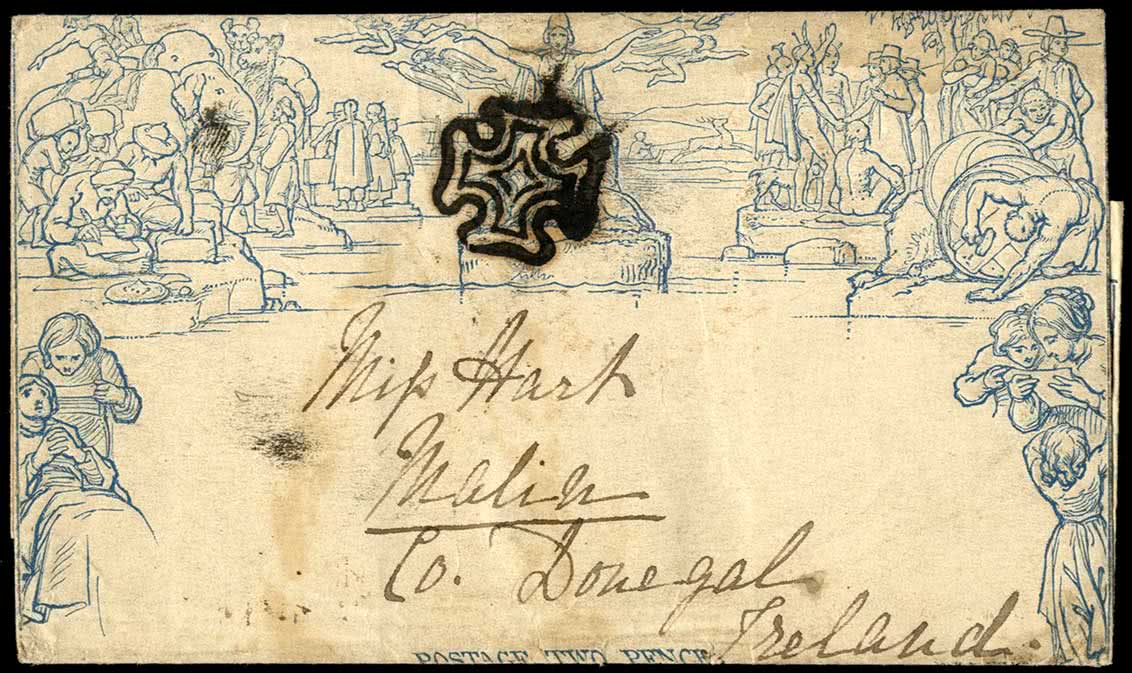 Miss Hart
Malin
Co. Donegal
Ireland.
POSTAGE TWO PENCE